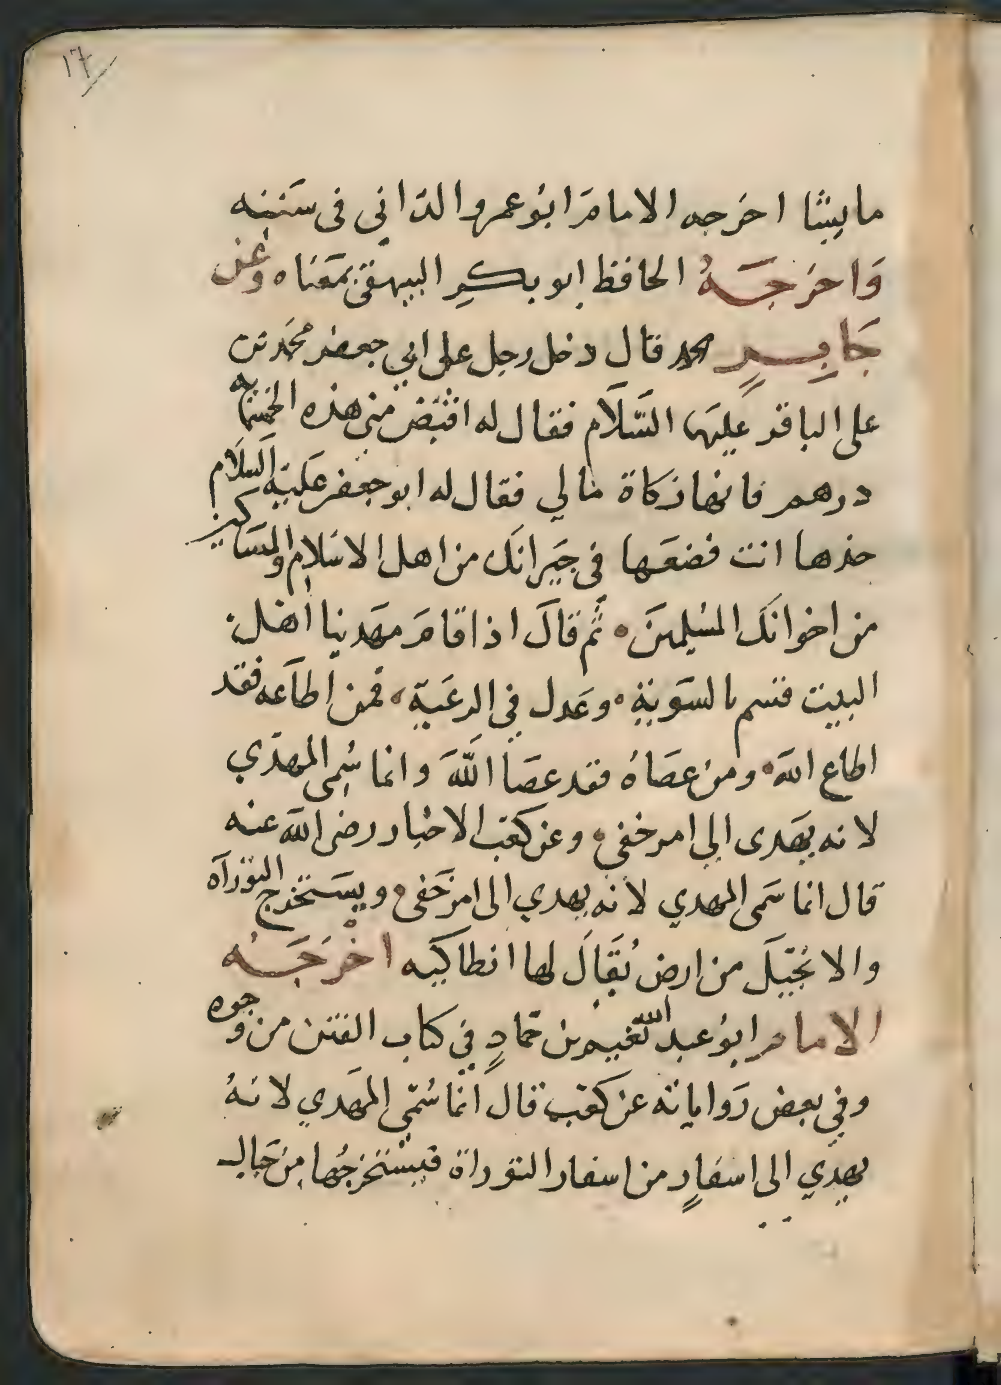 ١٧
ما يشا اخرجه الامام ابو عمرو الداني في سننه
واخرجه الحافظ ابو بكر البيهقي بمعناه وعن
جابر قال دخل رجل على ابي جعفر محمد بن
علي الباقر عليهما السلام فقال له اقبض مني هذه الخمسمايه
درهم فانها زكاة مالي فقال له ابو جعفر عليه السلام
خذها انت فضعها في جيرانك من اهل الاسلام والمساكين
من اخوانك المسلمين ثم قال اذا قام مهدينا اهل
البيت قسم بالسوية وعدل في الرعية فمن اطاعه فقد
اطاع الله ومن عصاه فقد عصا الله وانما سمي المهدي
لانه يهدى الى امر خفي وعن كعب الاحبار رضى الله عنه
قال انما سمى المهدي لانه يهدي الى امر خفي ويستخرج التوراة
والانجيل من ارض يقال لها انطاكيه اخرجه
الامام ابو عبد الله نعيم بن حماد في كتاب الفتن من وجوه
وفي بعض رواياته عن كعب قال انما سمي المهدي لانه
يهدي الى اسفار من اسفار التوراة فيستخرجها من جبال